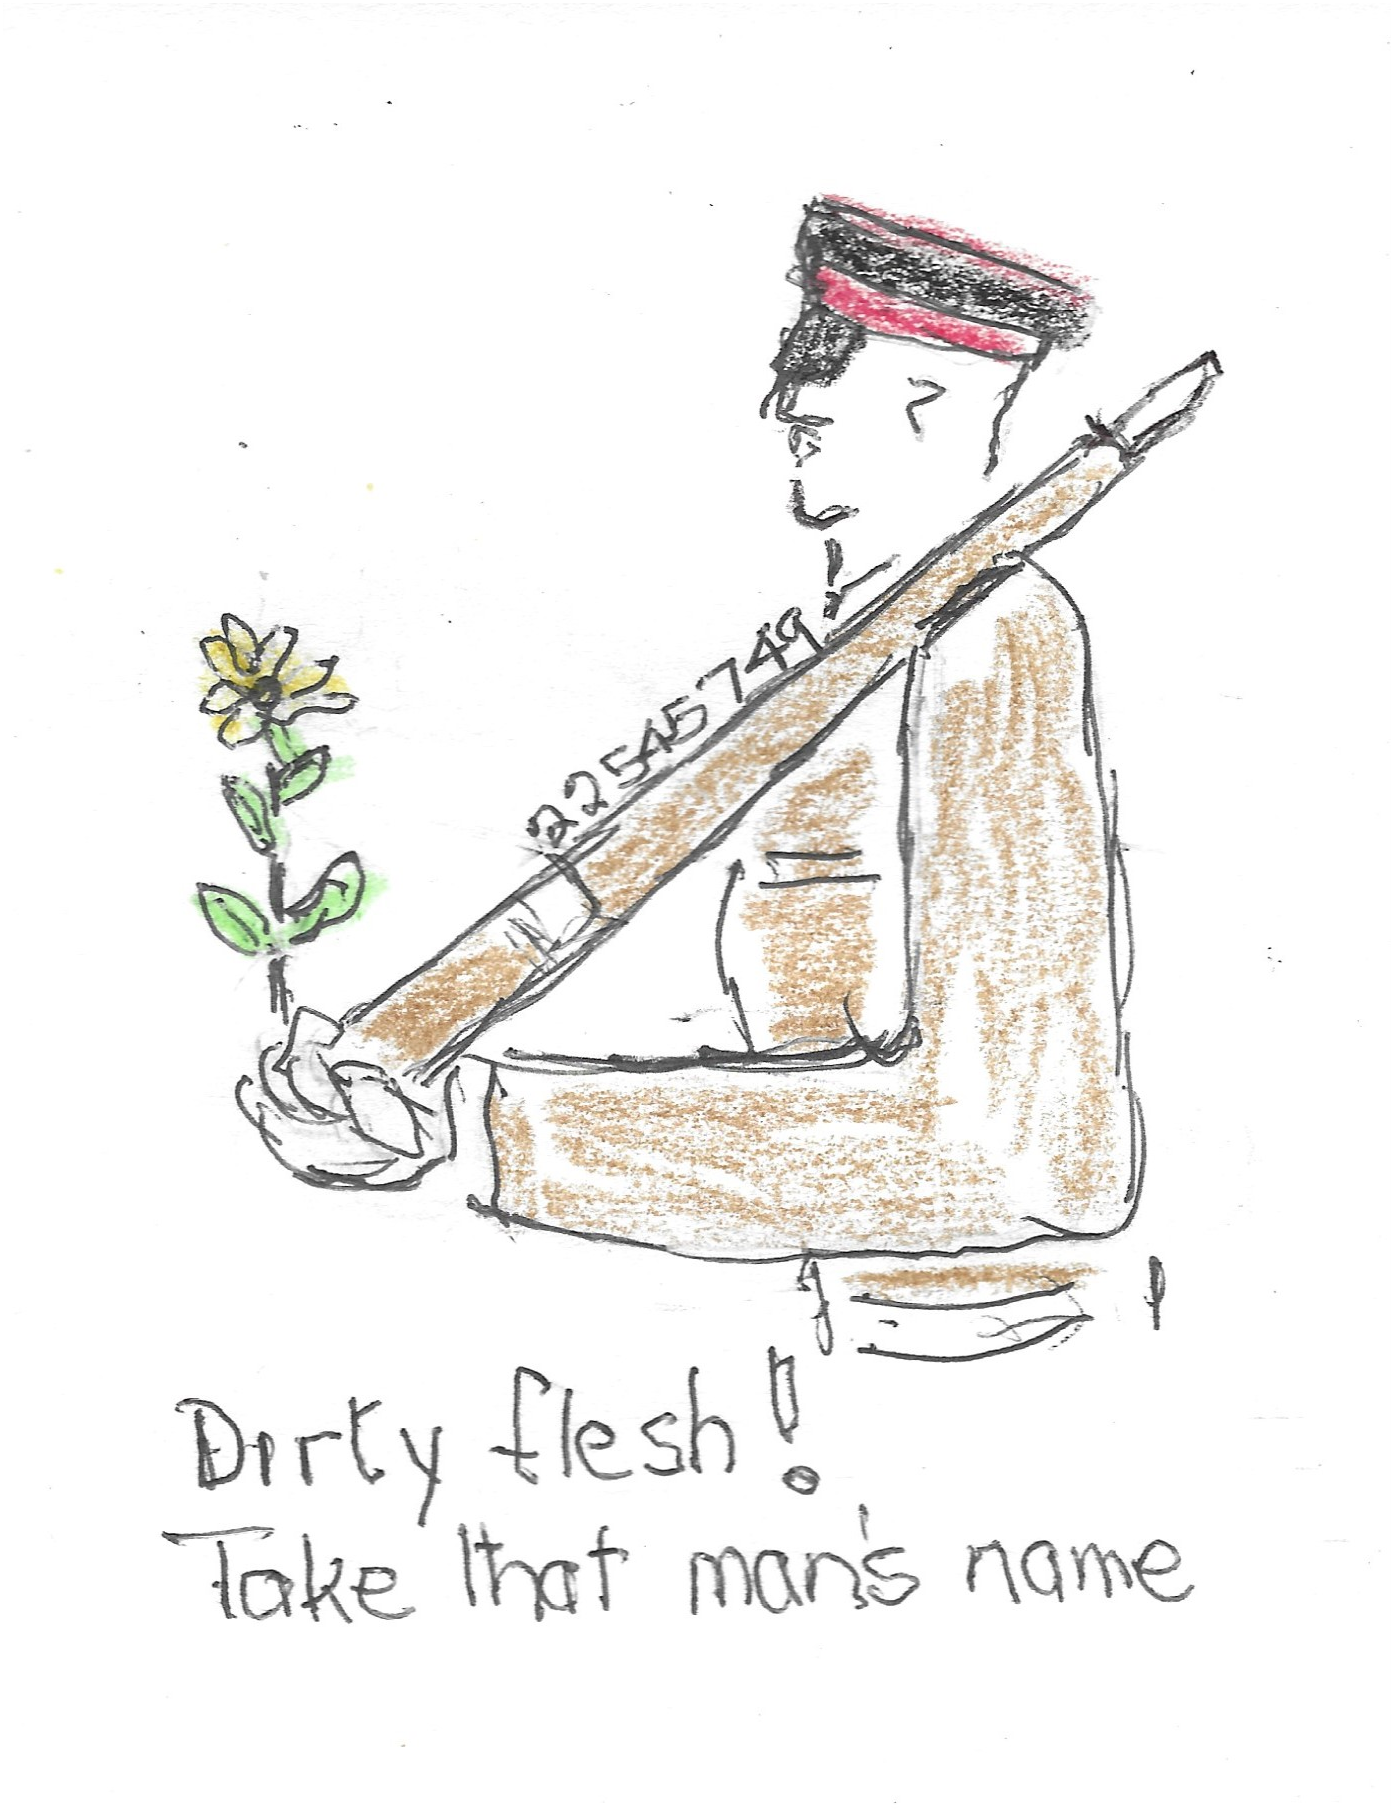 22545749
Dirty flesh!
Take that man's name